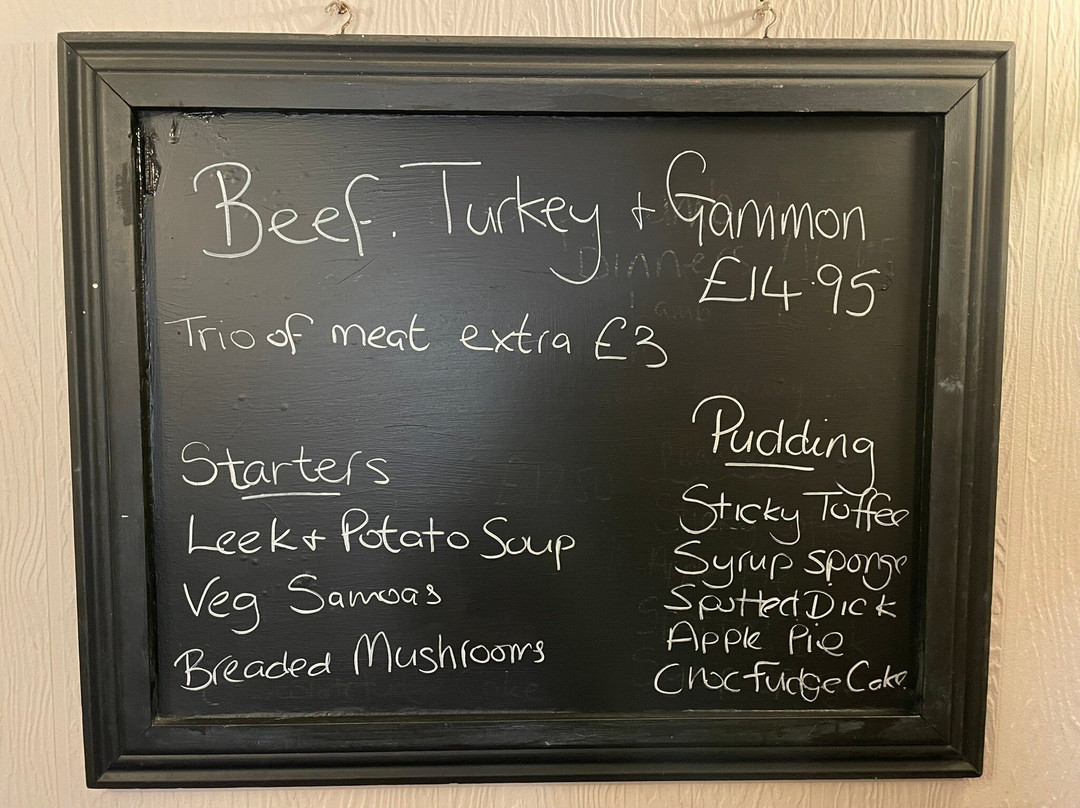 Beef. Turkey + Gammon
£14.95
Trio of meat extra £3
Starters
Leek + Potato Soup
Veg Samoas
Breaded Mushrooms
Pudding
Sticky Toffee
Syrup sponge
Spotted Dick
Apple Pie
Choc Fudge Cake